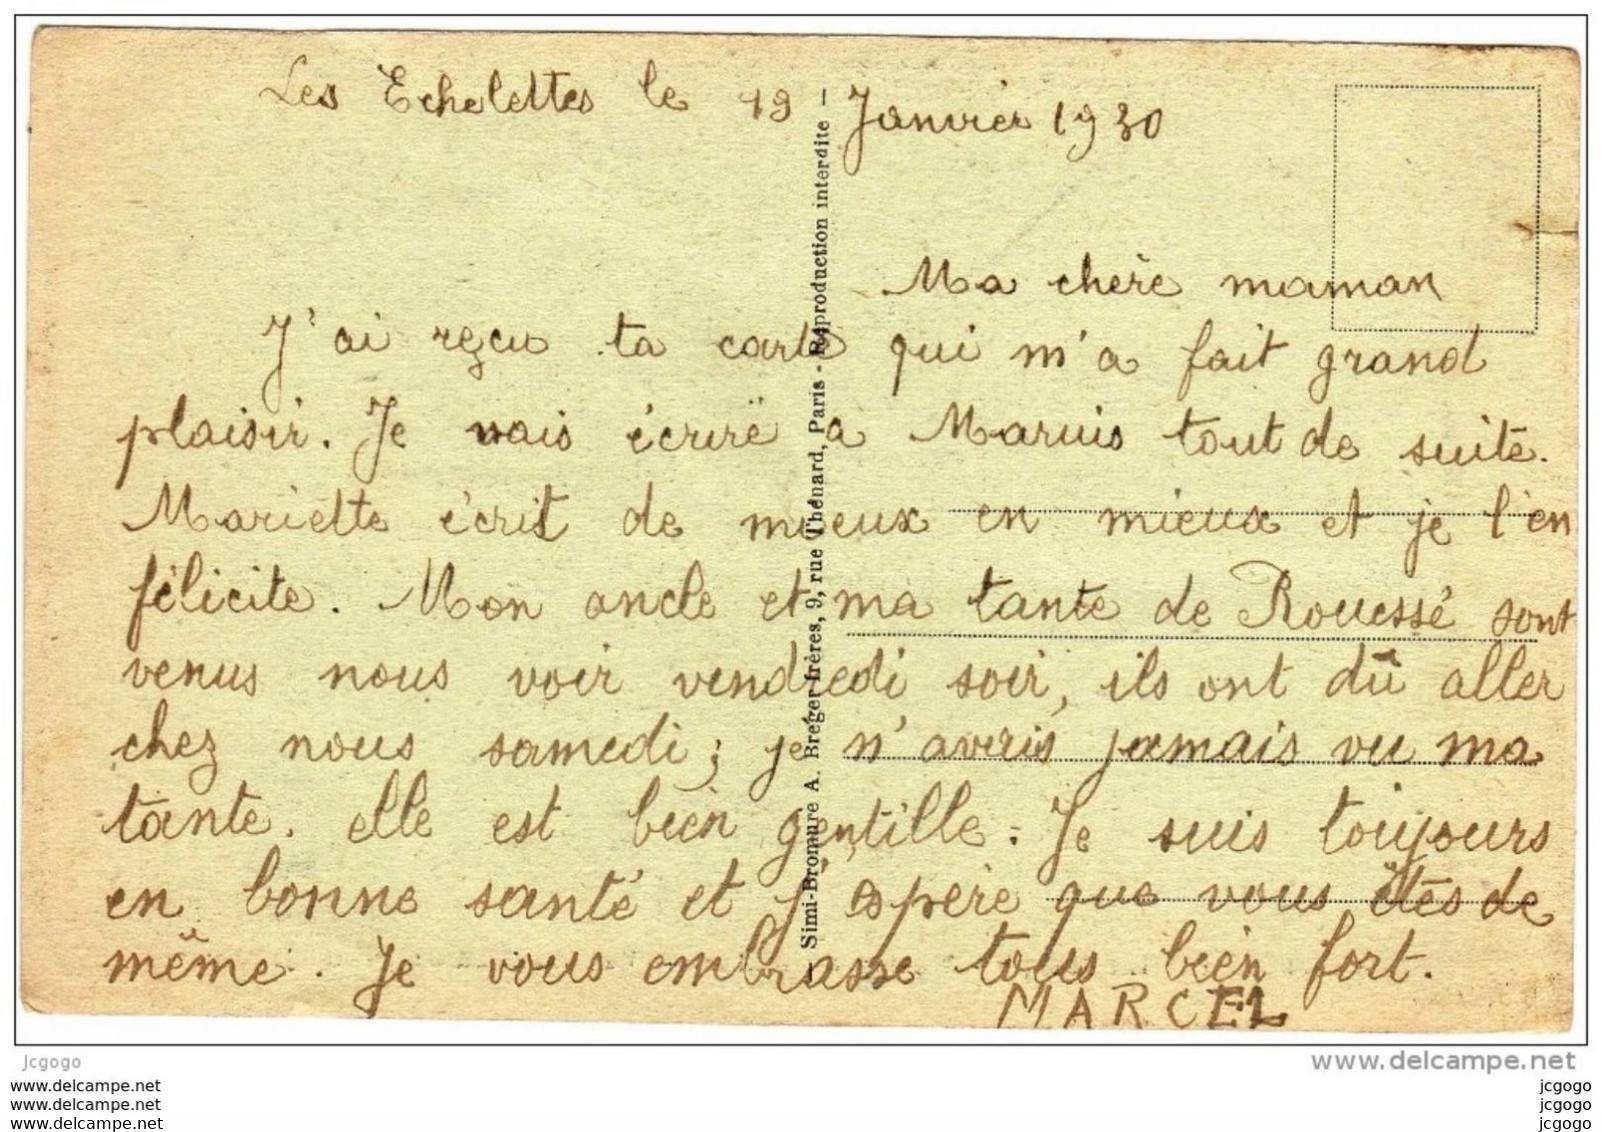 Les Echelettes le 19 Janvier 1930
Ma chère maman
J'ai reçu ta carte qui m'a fait grand
plaisir. Je vais écrire a Maruis tout de suite.
Mariette écrit de mieux en mieux et je l'en
félicite. Mon oncle et ma tante de Rouessé sont
venus nous voir vendredi soir, ils ont dû aller
chez nous samedi; je n'avais jamais vu ma
tante. elle est bien gentille. Je suis toujours
en bonne santé et j'espère que vous êtes de
même. Je vous embrasse tous bien fort.
MARCEL
Simi-Bromure A. Breger frères, 9, rue Thénard, Paris - Reproduction interdite -
Jcgogo
www.delcampe.net
www.delcampe.net
www.delcampe.net
www.delcampe.net
jcgogo
jcgogo
jcgogo